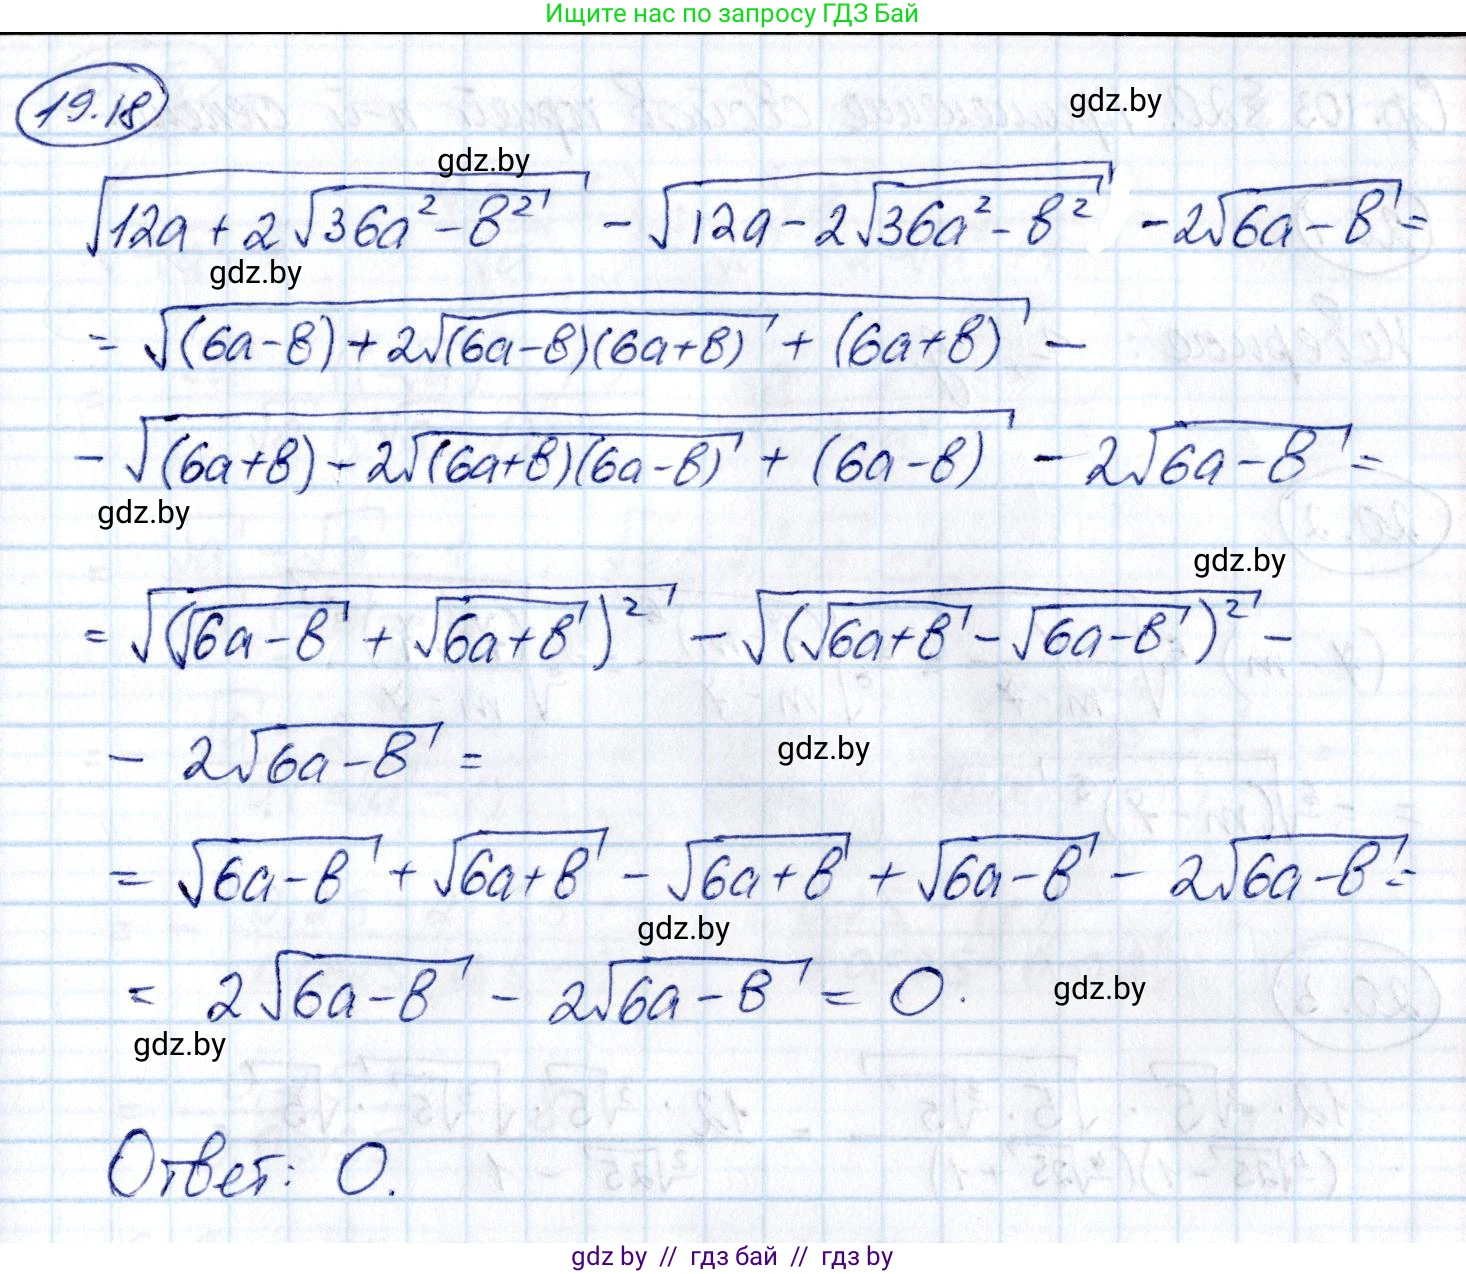 Ищите нас по запросу ГДЗ Бай
19.18
gdz.by
gdz.by
√(12a + 2√(36a² - в²)) - √(12a - 2√(36a² - в²)) - 2√(6a - в) =
gdz.by
= √((6a - в) + 2√((6a - в)(6a + в)) + (6a + в)) -
- √((6a + в) - 2√((6a + в)(6a - в)) + (6a - в)) - 2√(6a - в) =
gdz.by
gdz.by
= √((√(6a - в) + √(6a + в))²) - √((√(6a + в) - √(6a - в))²) -
- 2√(6a - в) =
gdz.by
= √(6a - в) + √(6a + в) - √(6a + в) + √(6a - в) - 2√(6a - в) =
gdz.by
= 2√(6a - в) - 2√(6a - в) = 0.
gdz.by
gdz.by
Ответ: 0.
gdz.by // гдз бай // гдз by